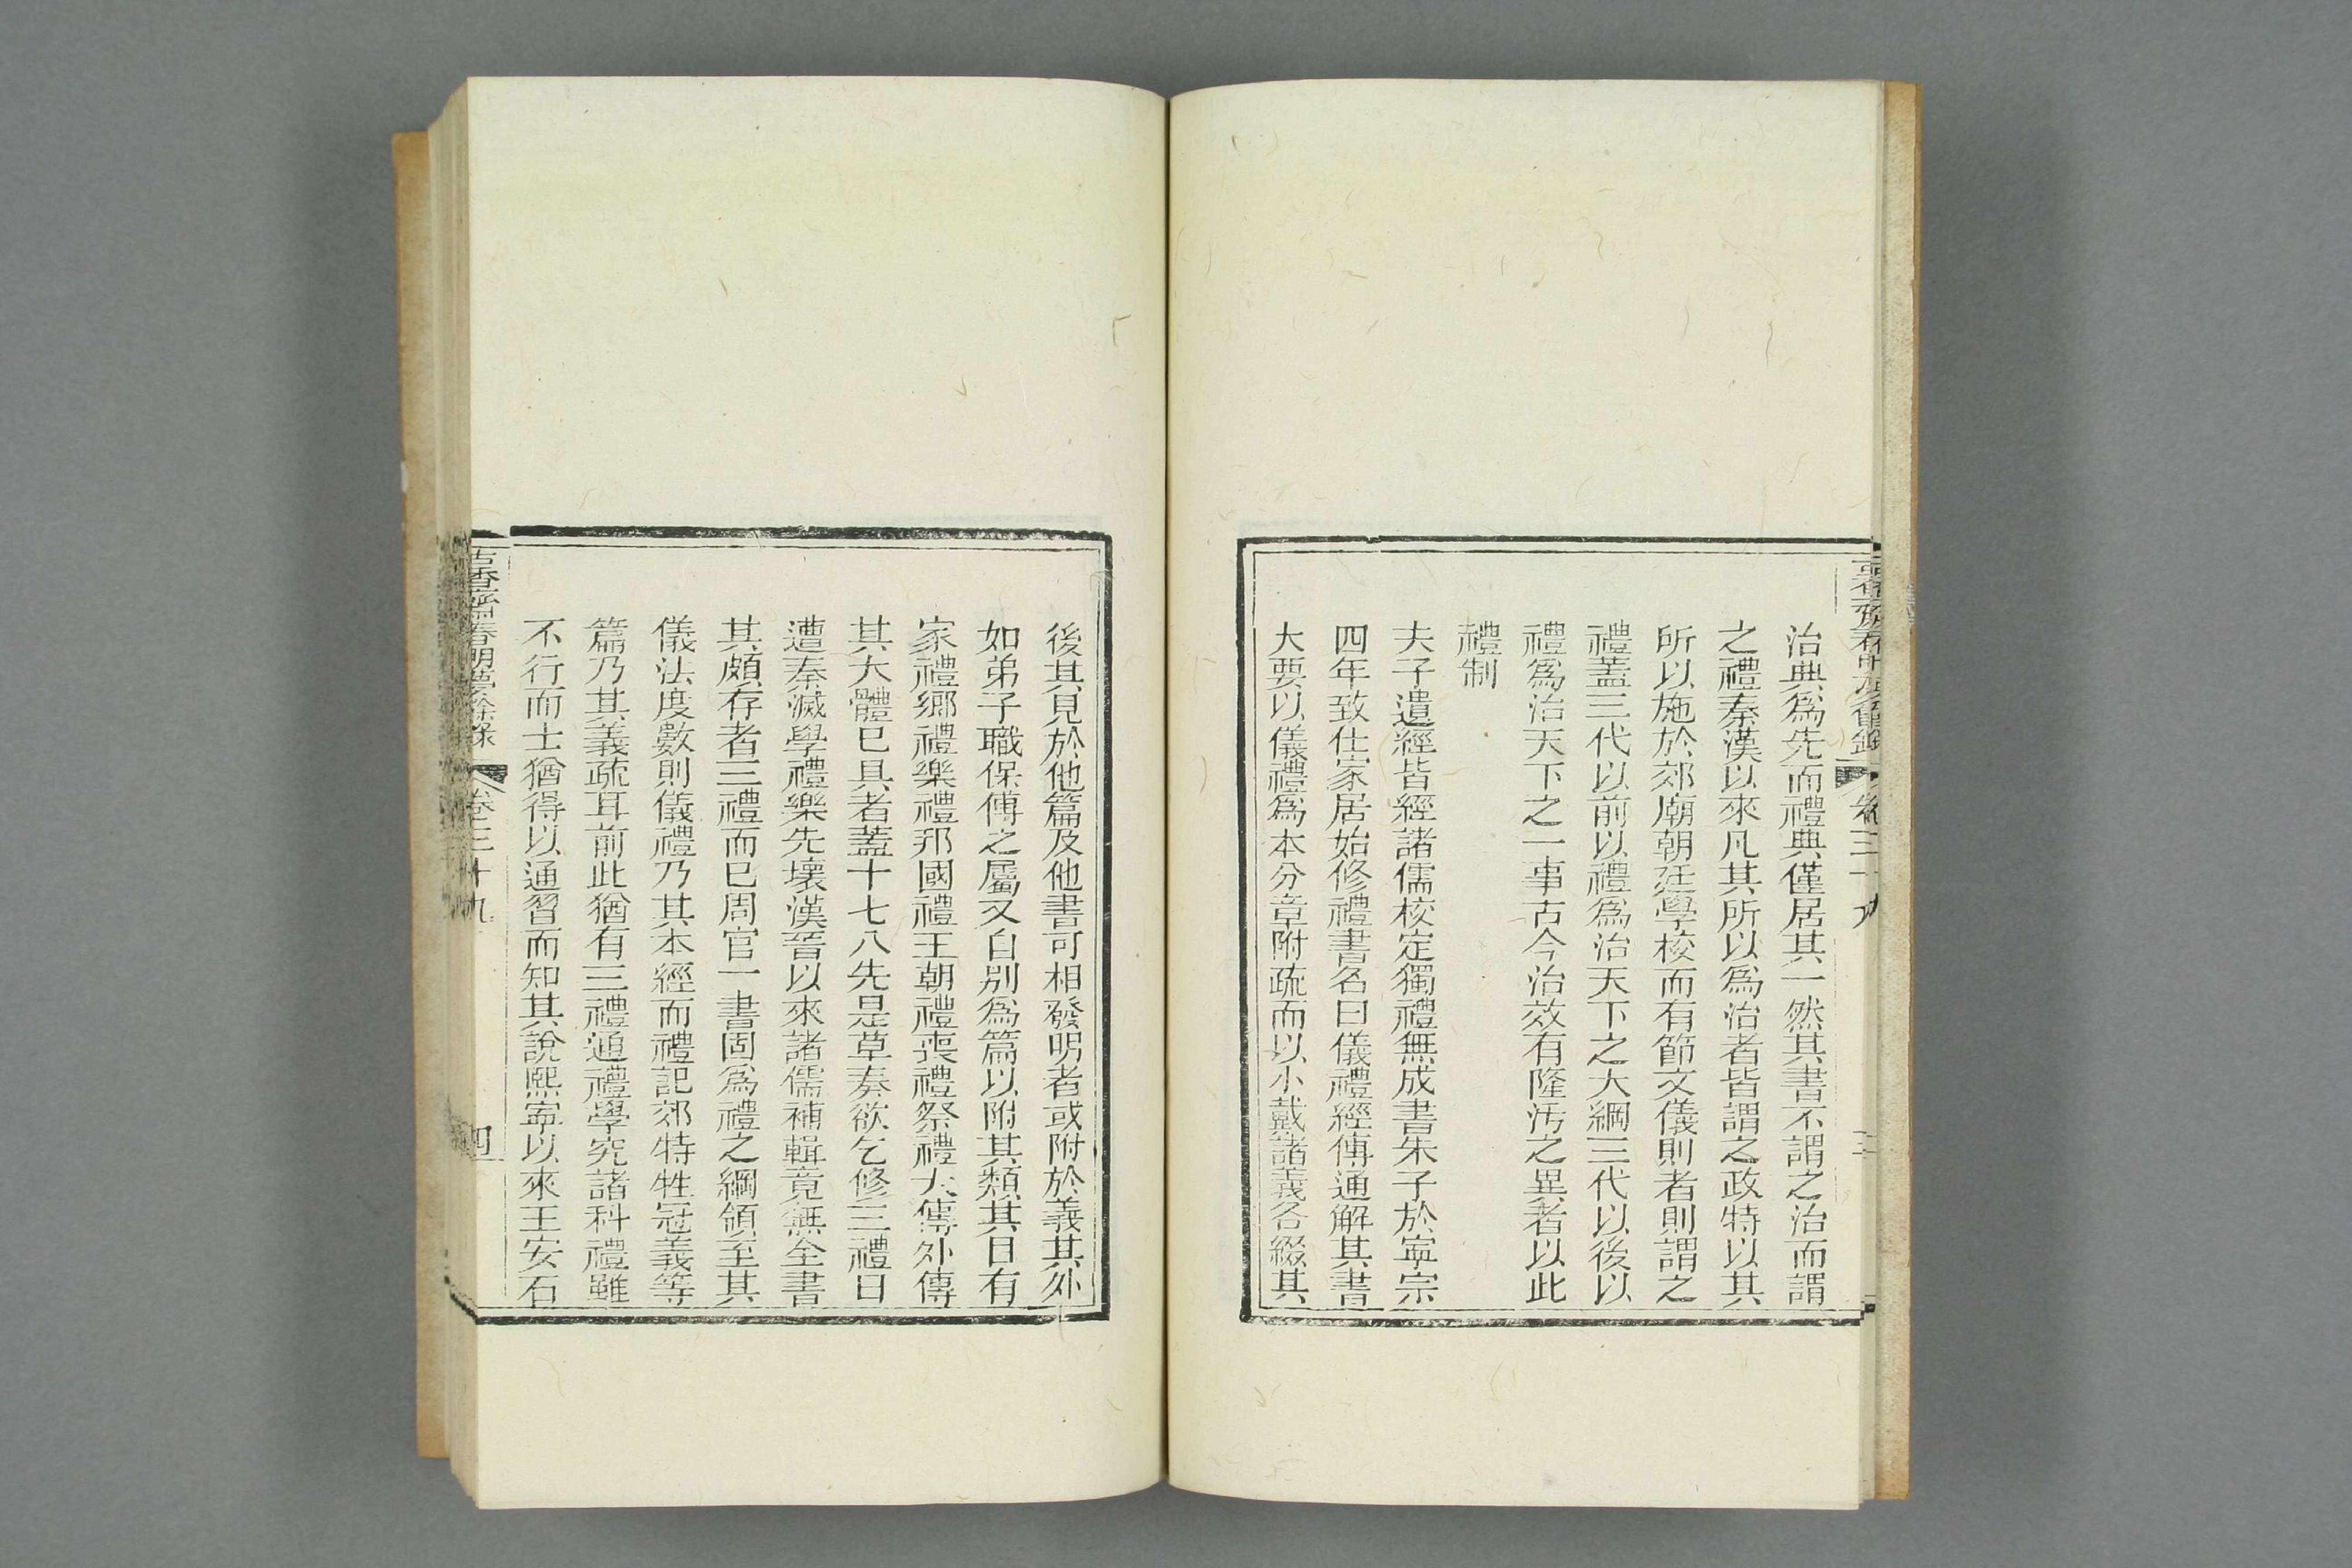 治典爲先而禮典僅居其一然其書不謂之治而謂
之禮秦漢以來凡其所以爲治者皆謂之政特以其
所以施於郊廟朝廷學校而有節文儀則者則謂之
禮蓋三代以前以禮爲治天下之大綱三代以後以
禮爲治天下之一事古今治效有隆汚之異者以此
禮制
夫子遺經皆經諸儒校定獨禮無成書朱子於寧宗
四年致仕家居始修禮書名曰儀禮經傳通解其書
大要以儀禮爲本分章附疏而以小戴諸義各綴其
後其見於他篇及他書可相發明者或附於義其外
如弟子職保傅之屬又自別爲篇以附其類其目有
家禮鄉禮樂禮邦國禮王朝禮喪禮祭禮大傳外傳
其大體已具者蓋十七八先是草奏欲乞修三禮日
遭秦滅學禮樂先壞漢晉以來諸儒補輯竟無全書
其頗存者三禮而已周官一書固爲禮之綱領至其
儀法度數則儀禮乃其本經而禮記郊特牲冠義等
篇乃其義疏耳前此猶有三禮通禮學究諸科禮雖
不行而士猶得以通習而知其說熙寧以來王安石
古香齋春明夢餘錄 卷三十九 四